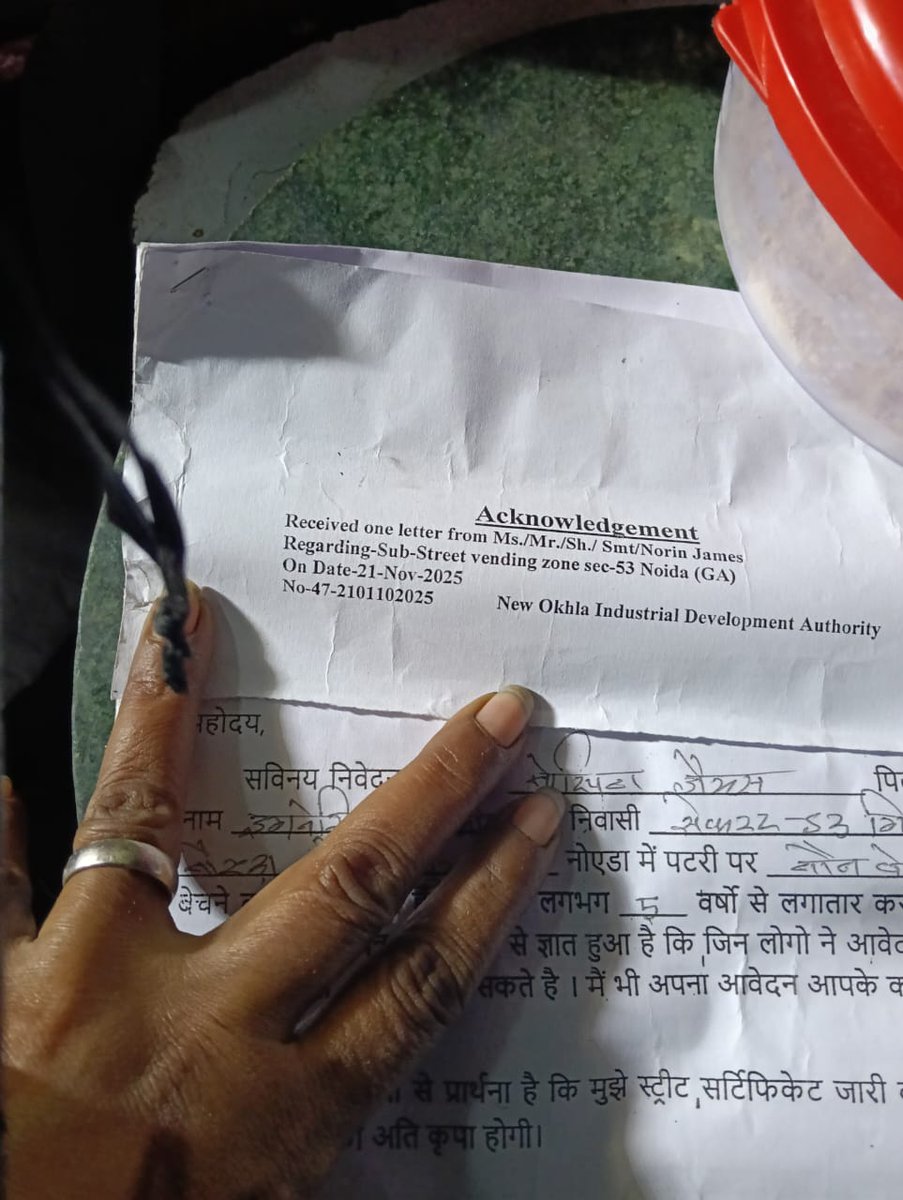 Acknowledgement
Received one letter from Ms./Mr./Sh./ Smt/Norin James
Regarding-Sub-Street vending zone sec-53 Noida (GA)
On Date-21-Nov-2025
No-47-2101102025
New Okhla Industrial Development Authority
महोदय,
सविनय निवेदन जेमस
नाम निवासी सेक्टर-53
नोएडा में पटरी पर
बेचने लगभग 5 वर्षो से लगातार
से ज्ञात हुआ है कि जिन लोगो ने
सकते है । मैं भी अपना आवेदन आपके
से प्रार्थना है कि मुझे स्ट्रीट सर्टिफिकेट जारी
अति कृपा होगी।